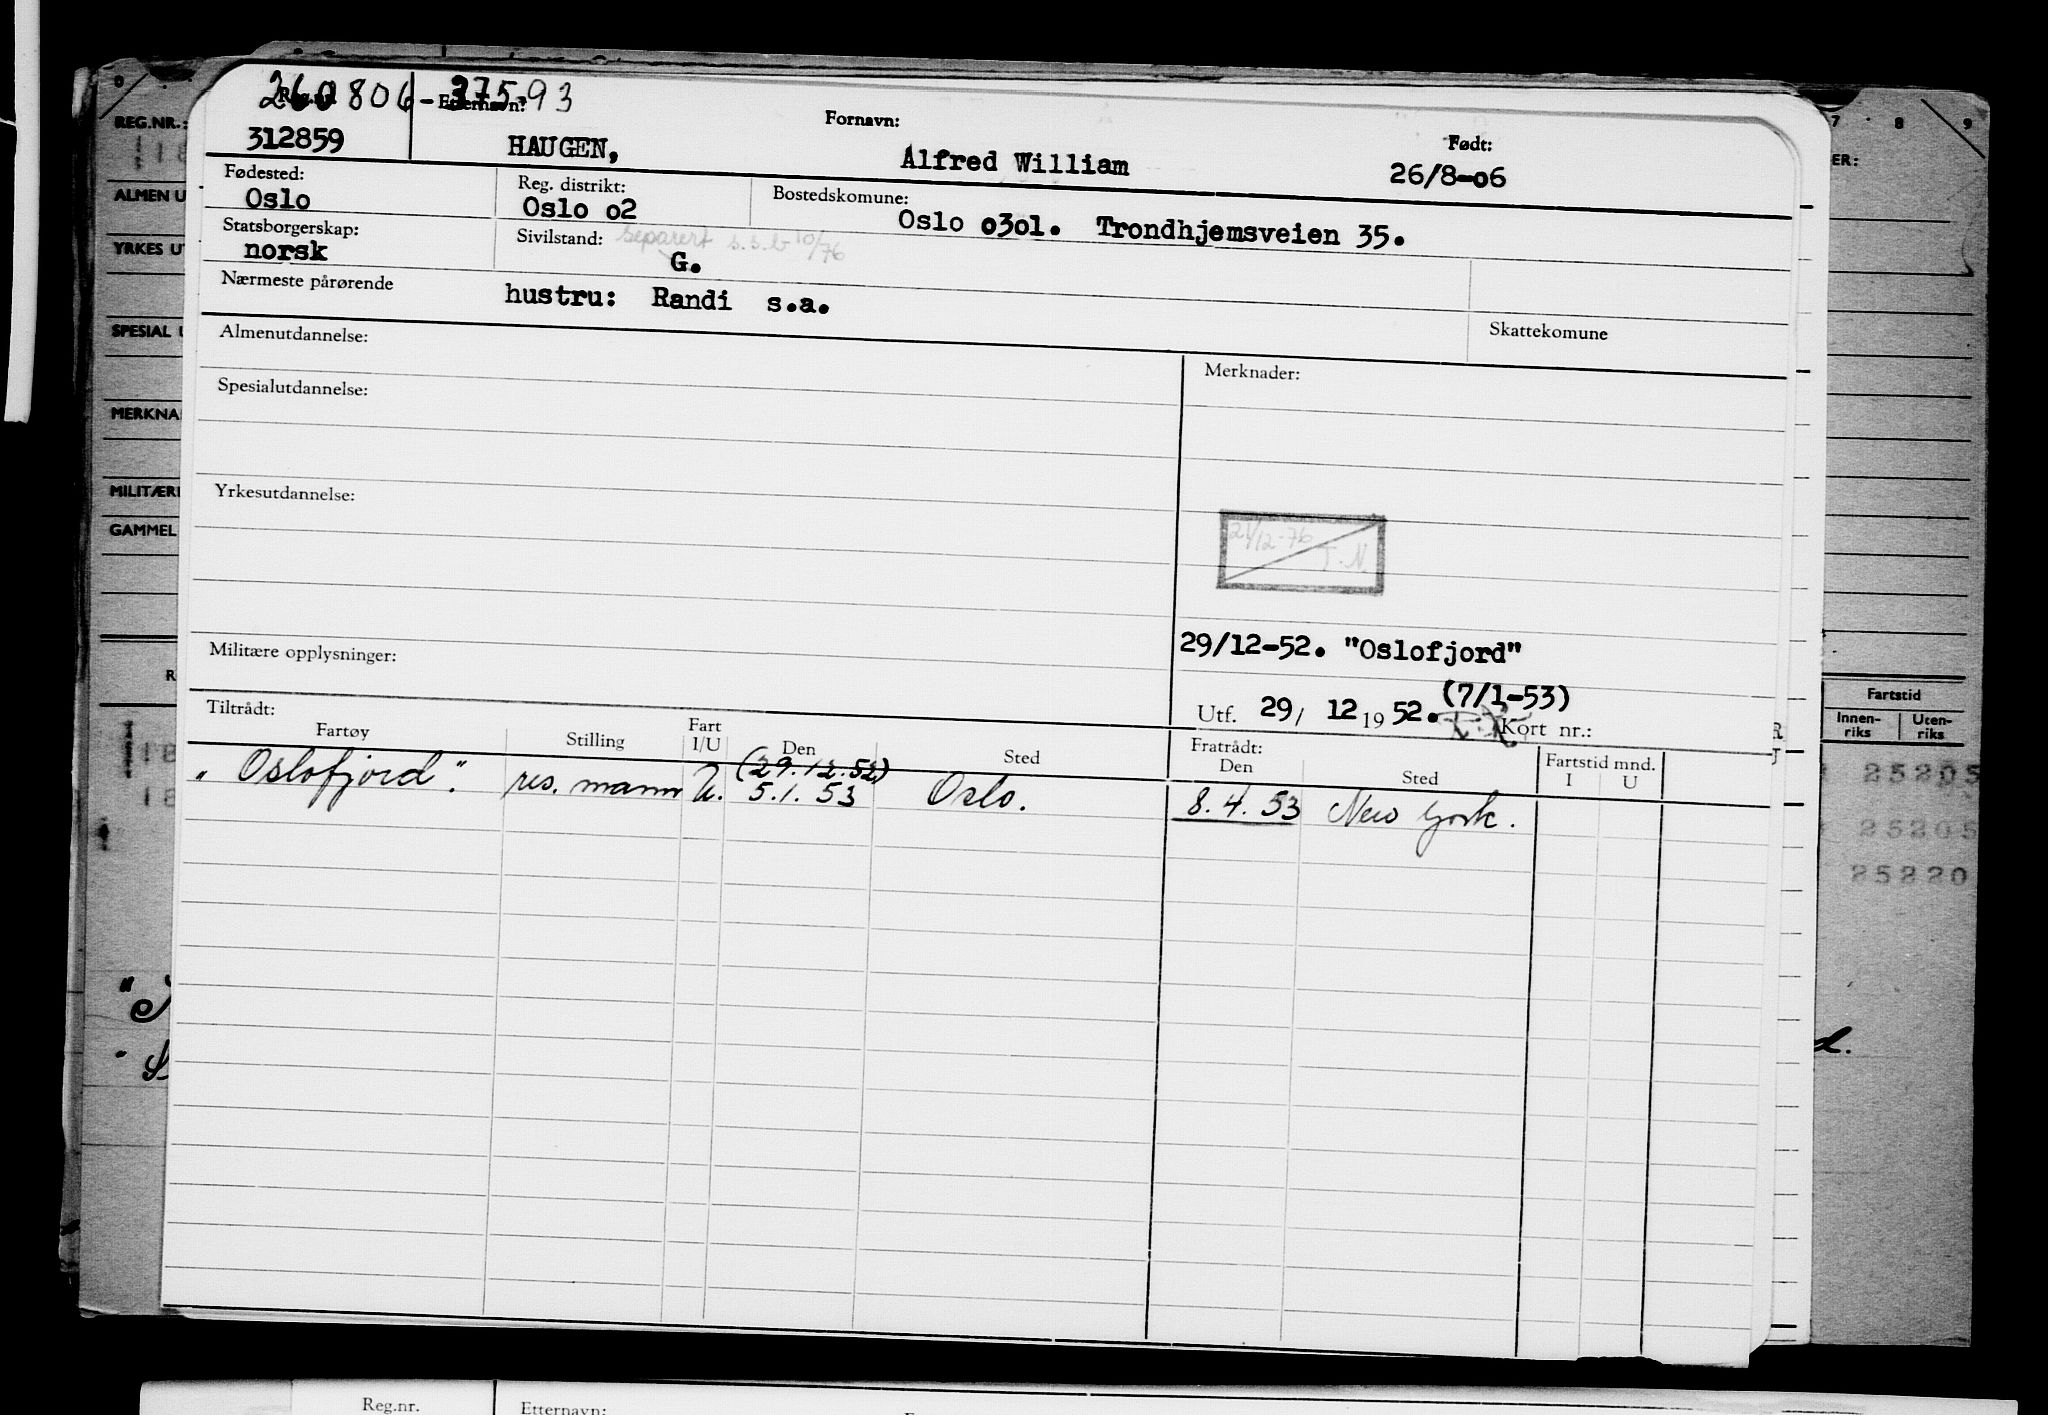 260806-37593
Reg.nr. Etternavn: Fornavn: Født:
312859 HAUGEN, Alfred William 26/8-o6
Fødested: Reg. distrikt: Bostedskomune:
Oslo Oslo o2 Oslo o3o1. Trondhjemsveien 35.
Statsborgerskap: Sivilstand: Separert s.s.b 10/76
norsk G.
Nærmeste pårørende hustru: Randi s.a.
Skattekomune
Almenutdannelse: Merknader:
Spesialutdannelse:
Yrkesutdannelse:
21/12-76 T.N.
29/12-52. "Oslofjord"
Militære opplysninger:
(7/1-53)
Utf. 29/ 12 19 52. Kort nr.:
Tiltrådt: Fratrådt:
Fartøy Stilling Fart I/U Den Sted Den Sted Fartstid mnd. I U
(29.12.52)
"Oslofjord". res. mann U. 5.1.53 Oslo. 8.4.53 New York.
REG.NR.:
ALMEN U
YRKES UT
SPESIAL U
MERKNA
MILITÆRE
GAMMEL
7 8 9
ER:
Fartstid
Innen-riks Uten-riks
25205
25205
25220
d.
Reg.nr. Etternavn: